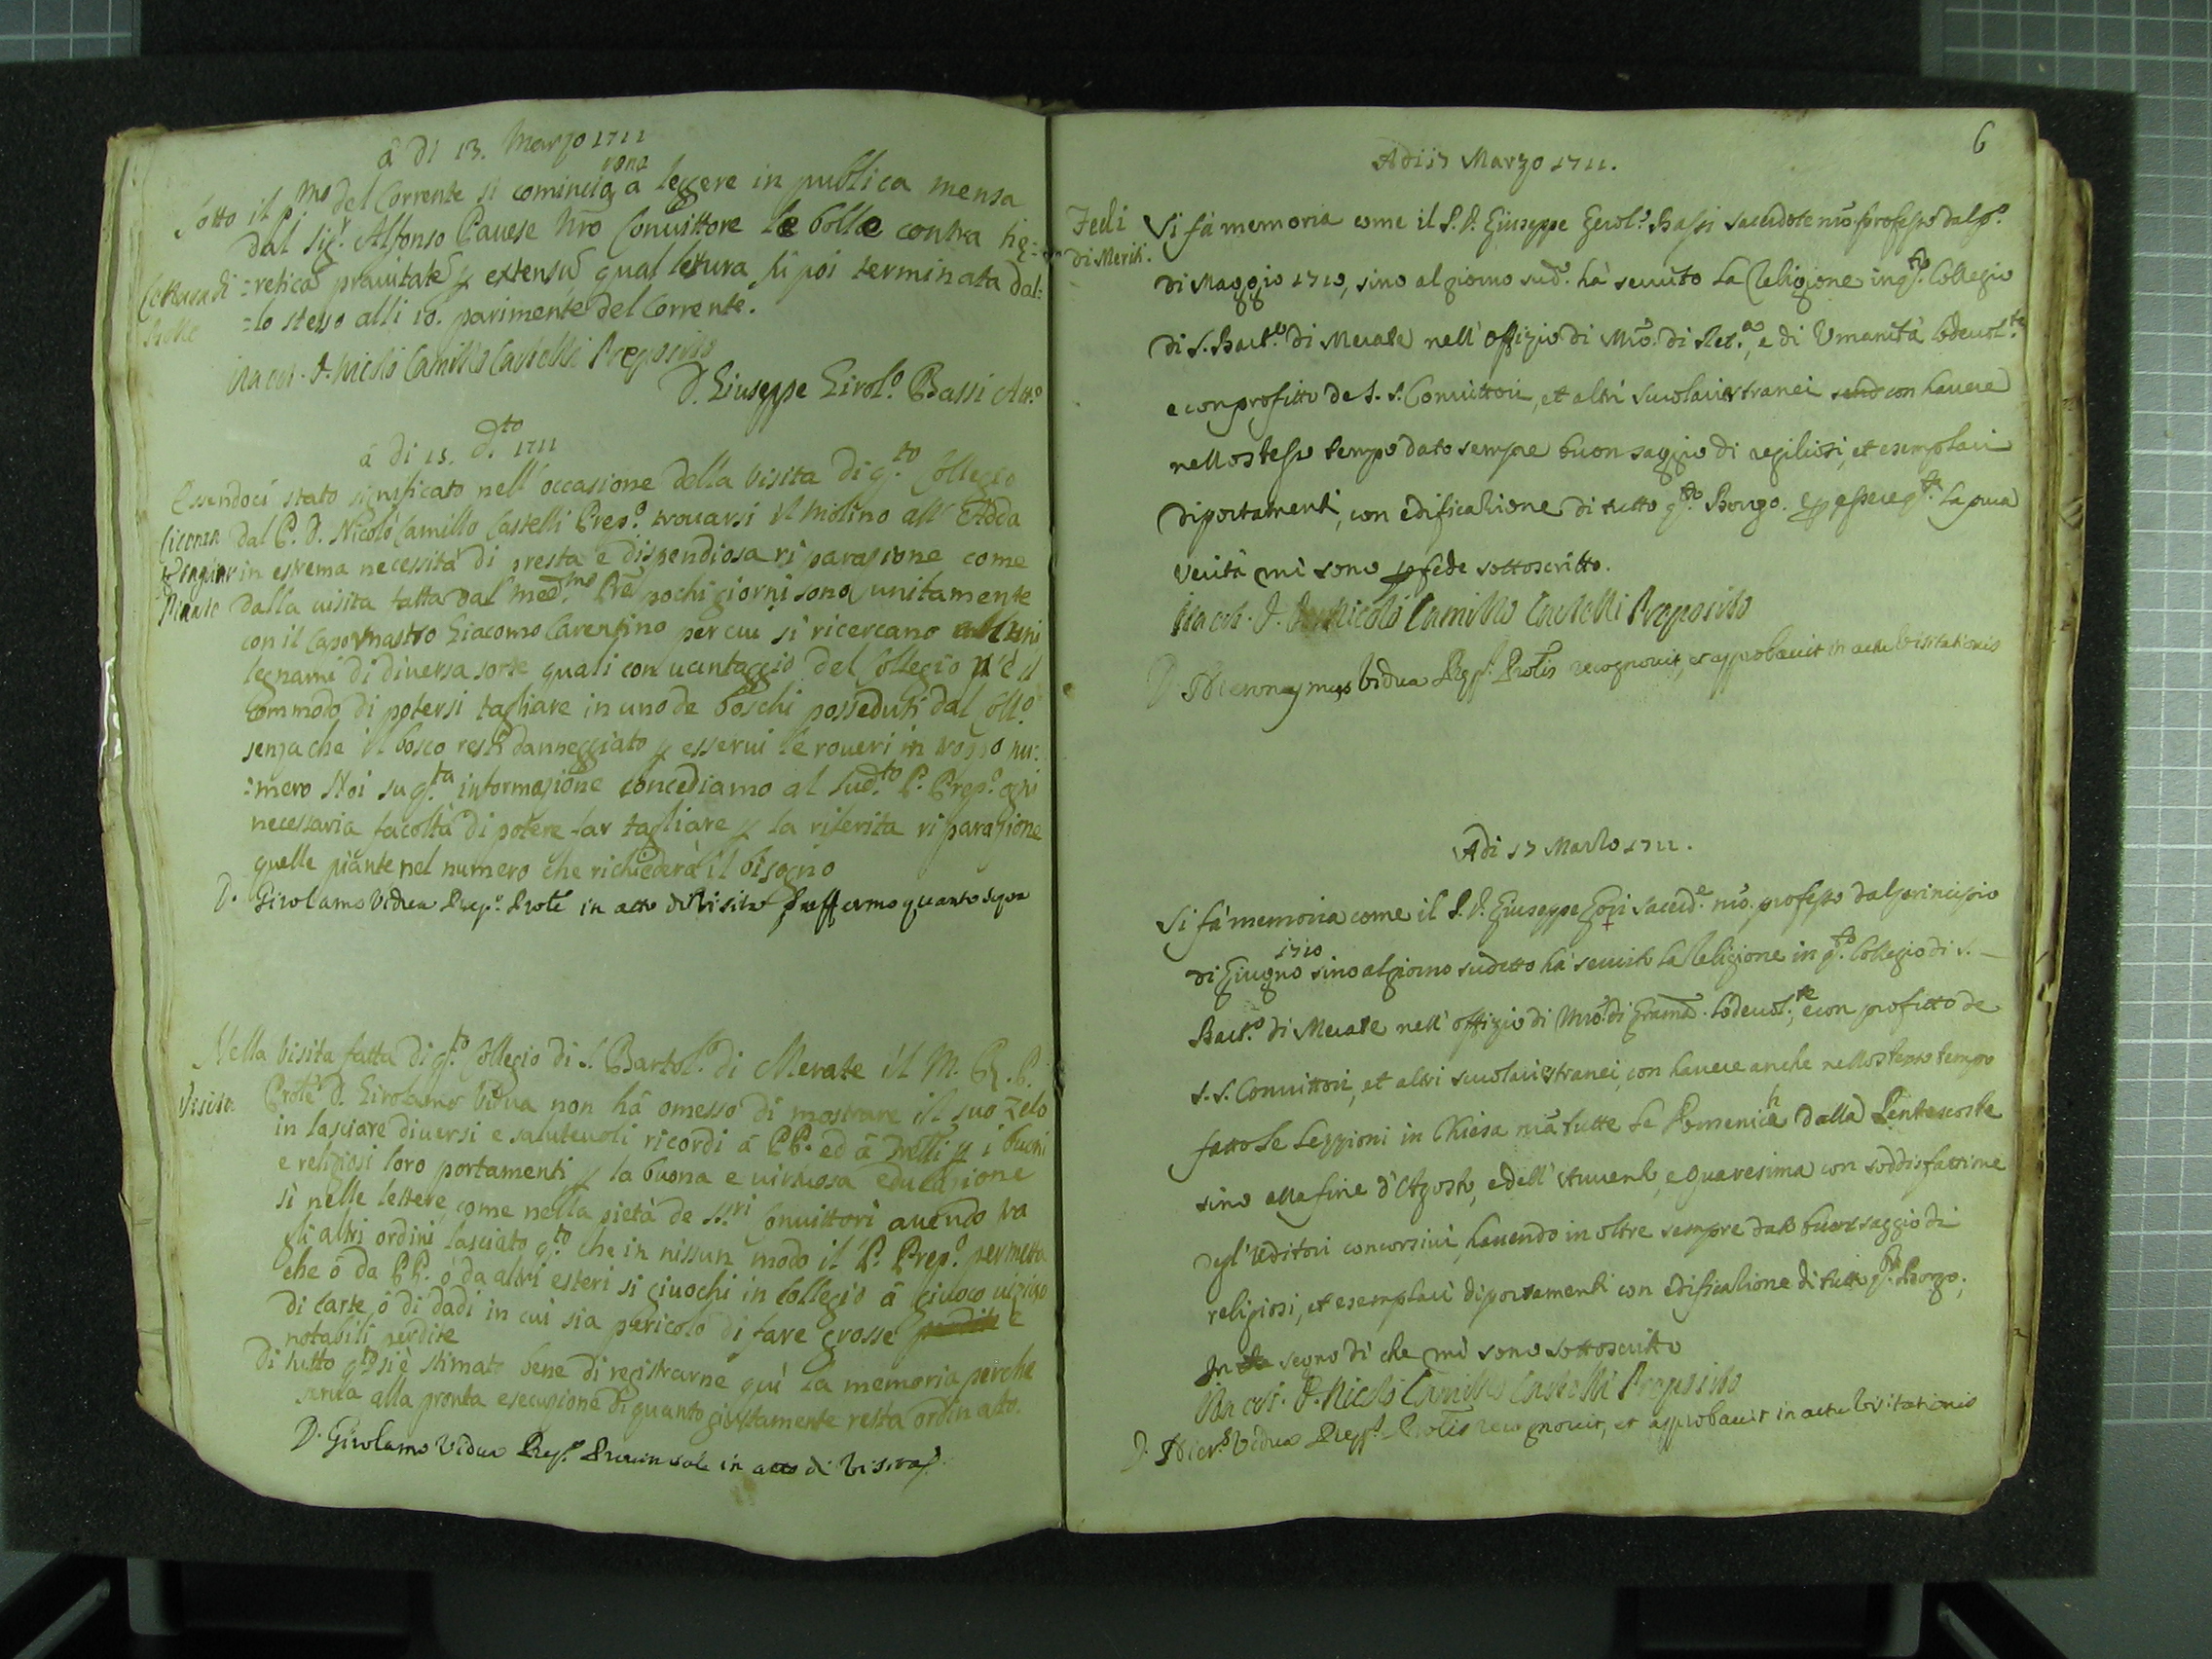 â di 13. Marzo 1711
Sotto il p.mo del Corrente si cominciorono a leggere in publica mensa
dal Sig.r Alfonso Pavese nro Convittore le bolle contra hę=
Lettura di =retică pravitatē p extensŭ qual lettura fù poi terminata dal:
Bolle =lo stesso alli 10. parimente del Corrente.
Ita est. D. Nicolò Camillo Castelli Preposito
D. Giuseppe Girol.o Bassi Att.o
â di 15. d.to 1711
Essendoci stato significato nell'occasione della visita di q.to Collegio
licenza dal P. D. Nicolò Camillo Castelli Prep.o trovarsi il Molino all'Adda
in estrema necessità di presta e dispendiosa riparazione come
Piante dalla visita fatta dal med.mo Pre pochi giorni sono unitamente
con il Capo mastro Giacomo Carentino per cui si ricercano alcuni
legnami di diversa sorte quali con vantaggio del Collegio v'è il
commodo di potersi tagliare in uno de boschi posseduti dal Coll.o
senza che il bosco resti danneggiato p esservi le roveri in troppo nu:
:mero Noi su q.ta informazione concediamo al sud.to P. Prep.o ogni
necessaria facoltà di potere far tagliare p la riferita riparazione
quelle piante nel numero che richiederà il bisogno
D. Girolamo Vidua Prep.o Prole in atto di Visita affermo quanto sopra
Nella Visita fatta di q.to Collegio di S. Bartol.o di Merate il M. R. P.
Visita Prole D. Girolamo Vidua non hà omesso di mostrare il suo Zelo
in lasciare diversi e salutevoli ricordi â PP. ed â Fratelli p i buoni
e religiosi loro portamenti p la buona e virtuosa educazione
sì nelle lettere, come nella pietà de SS.ri Convittori avendo tra
gli altri ordini lasciato q.to che in nissun modo il P. Prep.o permetta
che ô da PP. ô da altri esteri si giuochi in Collegio â giuoco vizioso
di carte, ô di dadi in cui sia pericolo di fare grosse perdite e
notabili perdite
Di tutto q.to si è stimato bene di registrarne quì la memoria perche
serva alla pronta esecuzione di quanto giustamente resta ordinato.
D. Girolamo Vidua Prep.o Provinciale in atto di Visita
6
A di 17 Marzo 1711.
Fedi Si fà memoria come il P. D. Giuseppe Girol.o Bassi sacerdote nro professo dal p.o
di Meriti. di Maggio 1710, sino al giorno sud.o hà servito la Religione in q.to Collegio
di S. Bart.o di Merate nell'offizio di Mro. di Ret.ca, e di Umanità lodevol.te
e con profitto de S. S. Convittori, et altri scuolari stranei con havere
nello stesso tempo dato sempre buon saggio di regiliosi, et esemplari
diportamenti, con edificatione di tutto q.to Borgo. E p essere q.ta la pura
verità mi sono p fede sottoscritto.
Ita est. D. Nicolò Camillo Castelli Preposito
D. Hieronymus Vidua Prep.s Prolis recognovit, et approbavit in actu Visitationis
A di 17 Marzo 1711.
Si fà memoria come il P. D. Giuseppe Gori sacerd.e nro. professo dal principio
di Giugno 1710 sino al giorno sudetto hà servito la Religione in q.to Collegio di S.
Bart.o di Merate nell'offizio di Mro. di Gramă. lodevol.te, e con profitto de
S. S. Convittori, et altri scuolari stranei, con havere anche nello stesso tempo
fatto le lezzioni in Chiesa nrã tutte le Domeniche dalla Pentecoste
sino alla fine d'Agosto, e dell'Avvento, e Quaresima con soddisfattione
degl'Uditori concorsivi, havendo in oltre sempre dato buon saggio di
religiosi, et esemplari diportamenti con edificatione di tutto q.to Borgo;
In segno di che mi sono sottoscritto
Ita est. D. Nicolò Camillo Castelli Preposito
D. Hier.s Vidua Prep.s Prolis recognovit, et approbavit in actu Visitationis